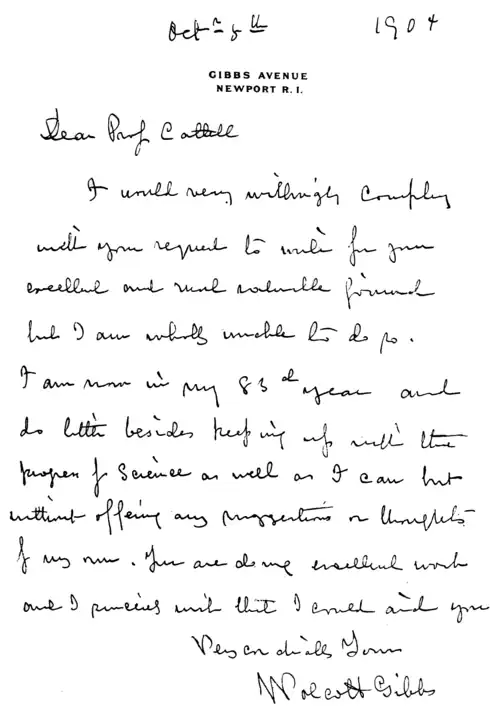 Octr 5th 1904
GIBBS AVENUE
NEWPORT R. I.
Dear Prof Cattell
I would very willingly comply
with your request to write for your
excellent and most valuable journal
but I am wholly unable to do so.
I am now in my 83d year and
do little besides keeping up with the
progress of Science as well as I can but
without offering any suggestions or thoughts
of my own. You are doing excellent work
and I sincerely wish that I could aid you
Very cordially Yours
Wolcott Gibbs